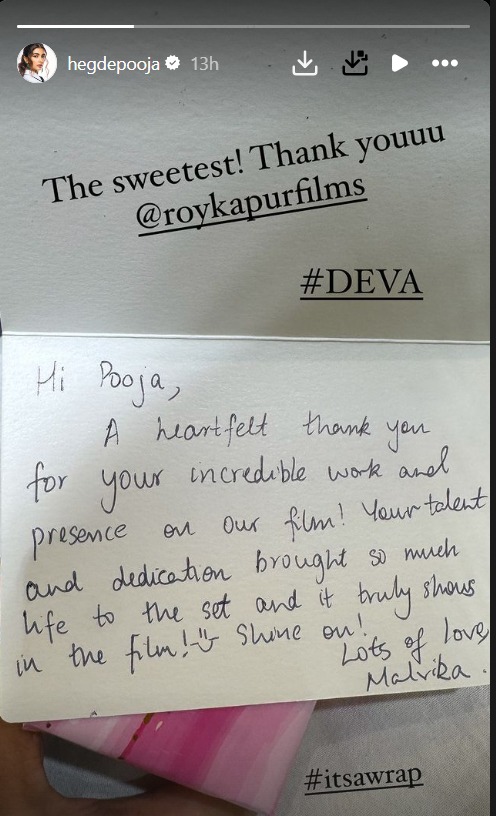 hegdepooja 13h
The sweetest! Thank youuu
@roykapurfilms
#DEVA
Hi Pooja,
A heartfelt thank you
for your incredible work and
presence on our film! Your talent
and dedication brought so much
life to the set and it truly shows
in the film! Shine on!
Lots of love,
Malvika.
#itsawrap